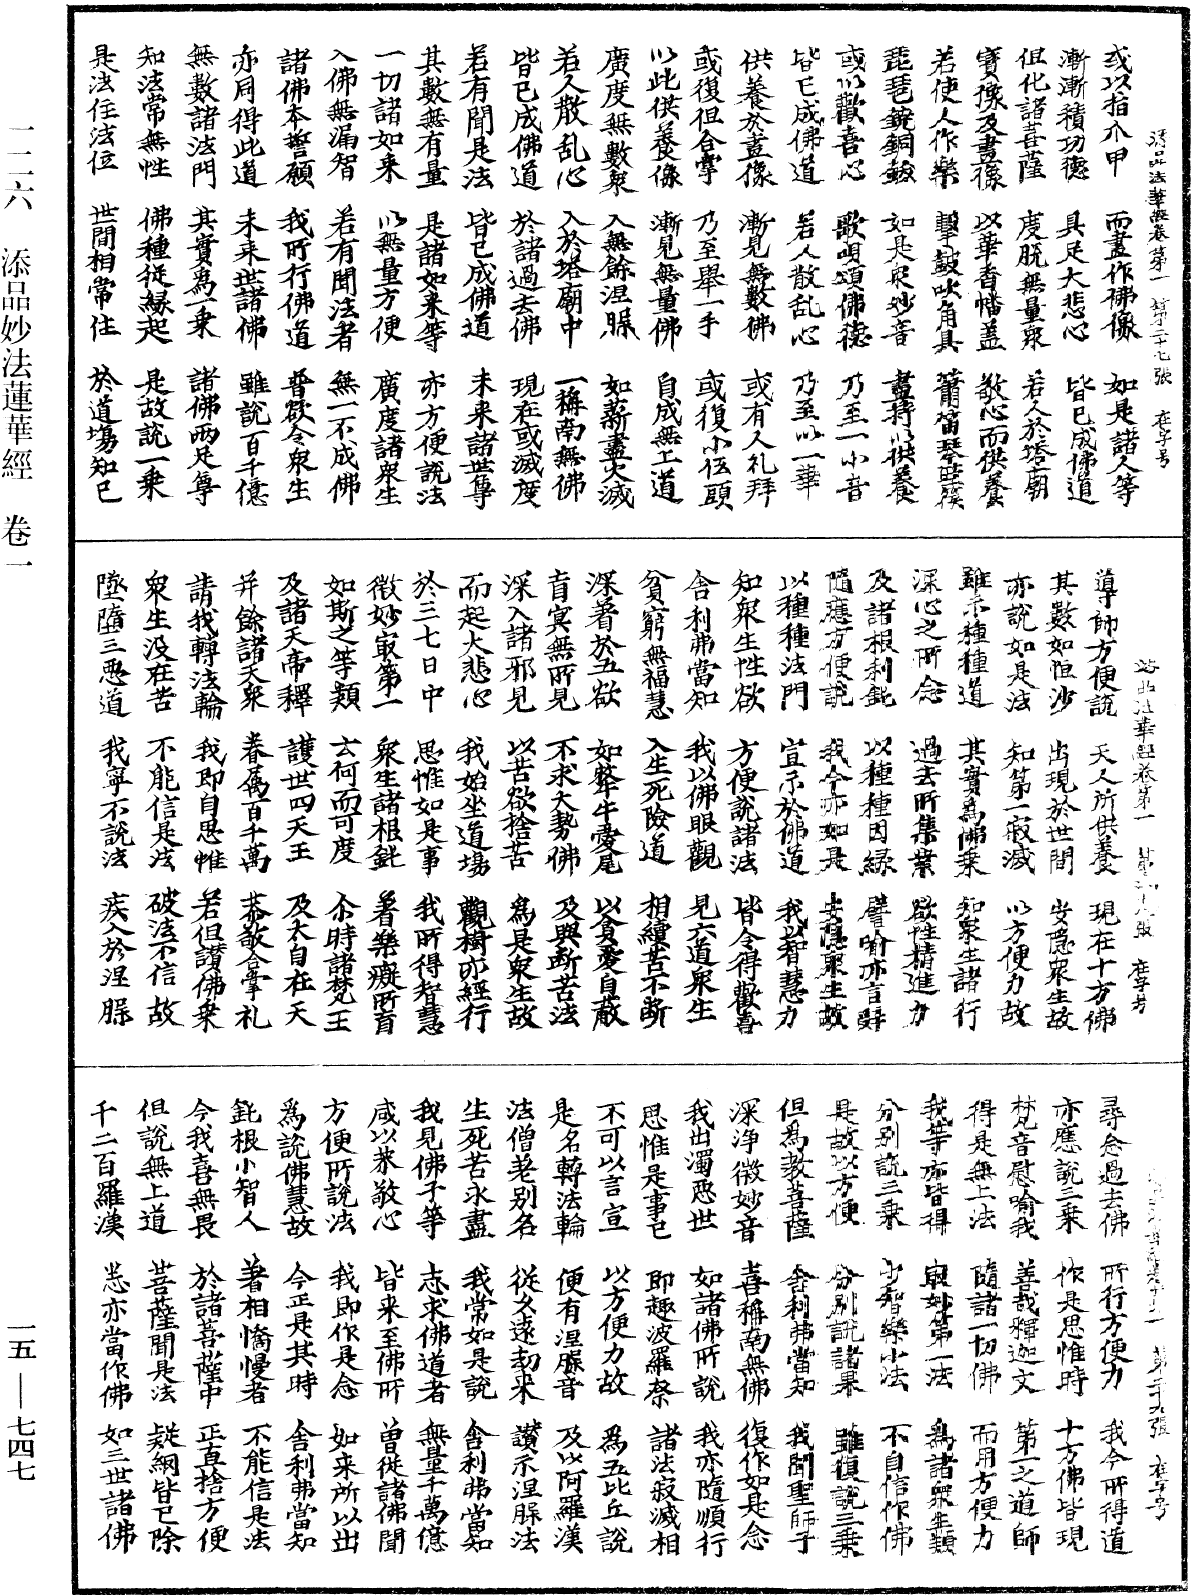 或以指爪甲 而畫作佛像 如是諸人等
漸漸積功德 具足大悲心 皆已成佛道
但化諸菩薩 度脫無量衆 若人於塔廟
寶像及畫像 以華香幡蓋 敬心而供養
若使人作樂 擊鼓吹角具 簫笛琴箜篌
琵琶鐃銅鈸 如是衆妙音 盡持以供養
或以歡喜心 歌唄頌佛德 乃至一小音
皆已成佛道 若人散乱心 乃至以一華
供養於畫像 漸見無數佛 或有人礼拜
或復但合掌 乃至舉一手 或復小低頭
以此供養像 漸見無量佛 自成無上道
廣度無數衆 入無餘涅槃 如薪盡火滅
若人散乱心 入於塔廟中 一稱南無佛
皆已成佛道 於諸過去佛 現在或滅度
若有聞是法 皆已成佛道 未來諸世尊
其數無有量 是諸如来等 亦方便說法
一切諸如来 以無量方便 廣度諸衆生
入佛無漏智 若有聞法者 無一不成佛
諸佛本誓願 我所行佛道 普欲令衆生
亦同得此道 未来世諸佛 雖說百千億
無數諸法門 其實爲一乗 諸佛兩足尊
知法常無性 佛種從縁起 是故說一乗
是法住法位 世間相常住 於道場知已
添品法華經卷第一 第二十七張 在字号
導師方便說 天人所供養 現在十方佛
其數如恒沙 出現於世間 安隱衆生故
亦說如是法 知第一寂滅 以方便力故
雖示種種道 其實爲佛乗 知衆生諸行
深心之所念 過去所集業 欲性精進力
及諸根利鈍 以種種因緣 譬喻亦言辭
隨應方便說 我今亦如是 安隱衆生故
以種種法門 宣示於佛道 我以智慧力
知衆生性欲 方便說諸法 皆令得歡喜
舍利弗當知 我以佛眼觀 見六道衆生
貧窮無福慧 入生死險道 相續苦不断
深著於五欲 如犛牛愛尾 以貪愛自蔽
盲冥無所見 不求大勢佛 及與断苦法
深入諸邪見 以苦欲捨苦 爲是衆生故
而起大悲心 我始坐道場 觀樹亦經行
於三七日中 思惟如是事 我所得智慧
微妙最第一 衆生諸根鈍 著樂癡所盲
如斯之等類 云何而可度 尒時諸梵王
及諸天帝釋 護世四天王 及大自在天
并餘諸天衆 眷屬百千萬 恭敬合掌礼
請我轉法輪 我即自思惟 若但讃佛乗
衆生没在苦 不能信是法 破法不信故
墜墮三惡道 我寧不說法 疾入於涅槃
添品法華經卷第一 第二十八張 在字号
尋念過去佛 所行方便力 我今所得道
亦應說三乗 作是思惟時 十方佛皆現
梵音慰喻我 善哉釋迦文 第一之道師
得是無上法 隨諸一切佛 而用方便力
我等亦皆得 最妙第一法 爲諸衆生類
分别說三乗 少智樂小法 不自信作佛
是故以方便 分别說諸果 雖復說三乗
但爲教菩薩 舍利弗當知 我聞聖師子
深淨微妙音 喜稱南無佛 復作如是念
我出濁惡世 如諸佛所說 我亦隨順行
思惟是事已 即趣波羅柰 諸法寂滅相
不可以言宣 以方便力故 爲五比丘說
是名轉法輪 便有涅槃音 及以阿羅漢
法僧差别名 從久遠劫来 讃示涅槃法
生死苦永盡 我常如是說 舍利弗當知
我見佛子等 志求佛道者 無量千萬億
咸以恭敬心 皆来至佛所 曾從諸佛聞
方便所說法 我即作是念 如来所以出
爲說佛慧故 今正是其時 舍利弗當知
鈍根小智人 著相憍慢者 不能信是法
今我喜無畏 於諸菩薩中 正直捨方便
但說無上道 菩薩聞是法 疑網皆已除
千二百羅漢 悉亦當作佛 如三世諸佛
第二十九張 在字号
一一六 添品妙法蓮華經 卷一
一五—七四七